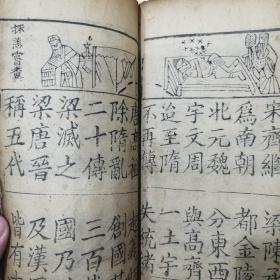 宋齊繼
為南朝
都金陵
北元魏
分東西
宇文周
與高齊
迨至隋
一土宇
不再傳
失統緒
唐高祖
除隋亂
創國
二十傳
三百
梁滅之
國乃
梁唐晉
及漢
稱五代
皆有